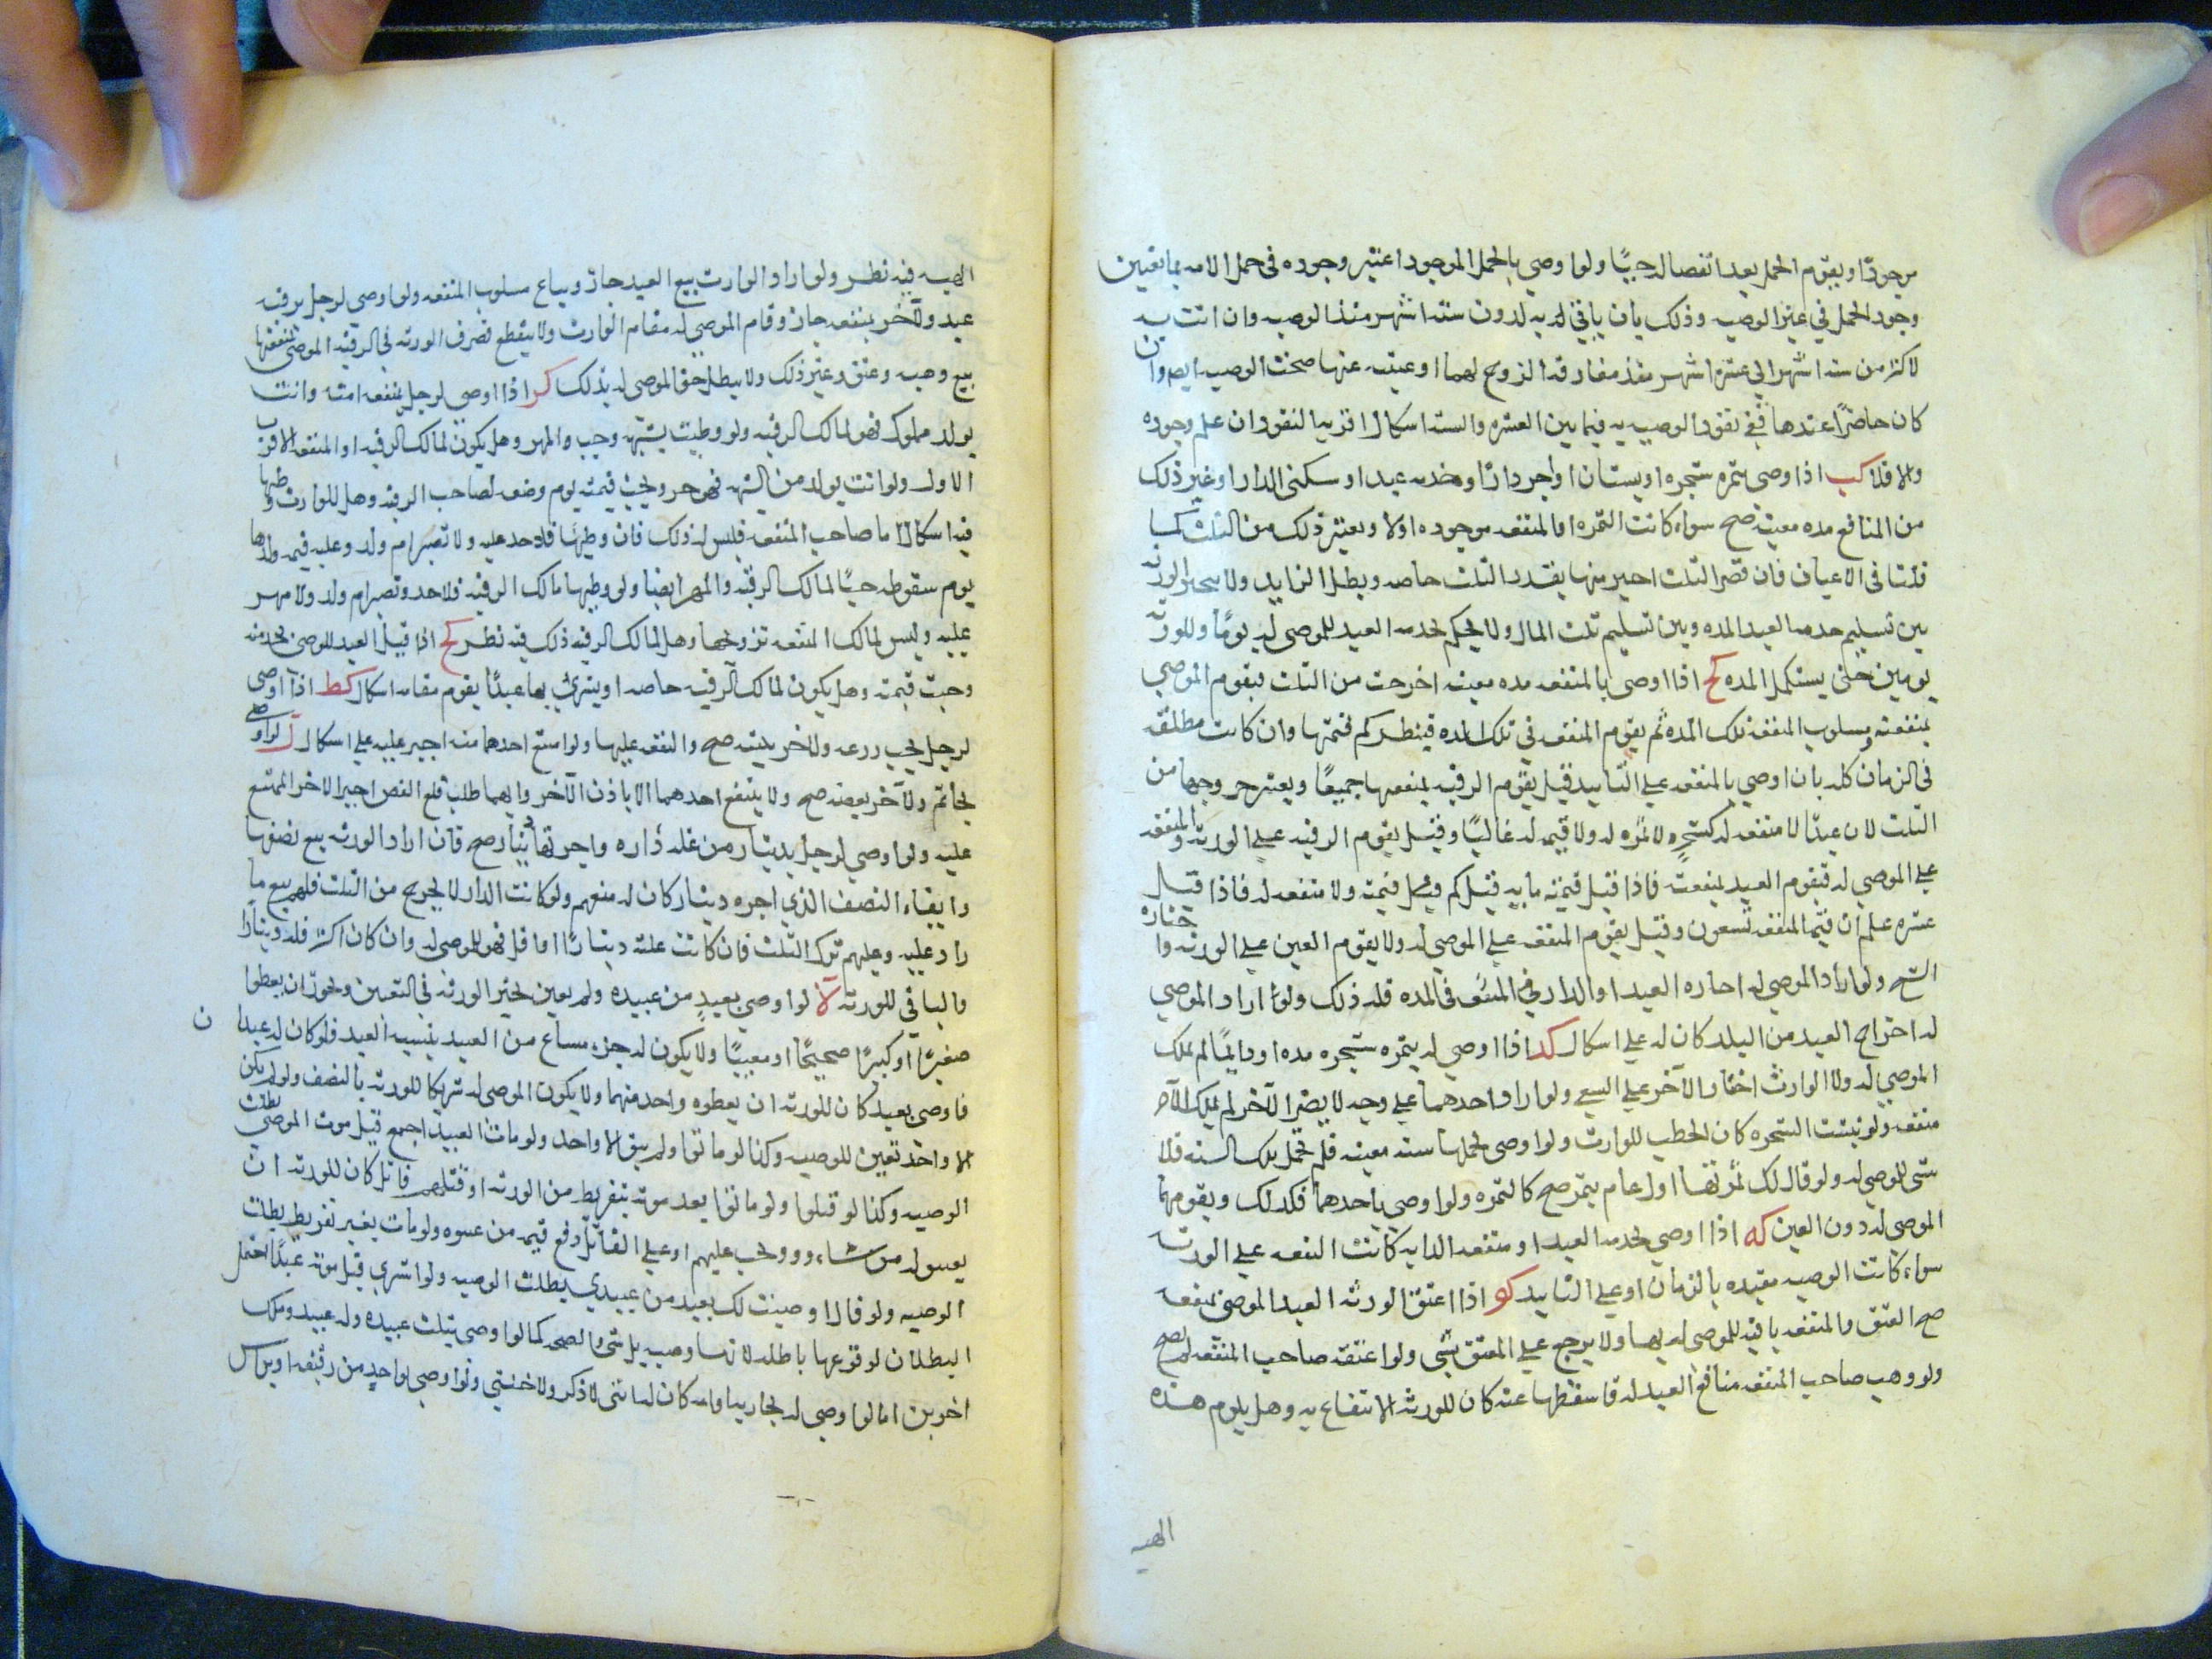 موجودًا ويقوم الحمل بعد انفصاله حيًا ولو اوصي بالحمل الموجود اعتبر وجوده في حمل الامه بما يتعين
وجود الحمل في عير الوصيه وذلك بان ياتي له به لدون سته اشهر منذ الوصيه وان اتت به
لاكثر من سته اشهر الي عشره اشهر منذ مفارقه الزوج لها او غيبته عنها صحت الوصيه ايضا وان
كان حاضرًا عندها ففي نفوذ الوصيه به فيما بين العشره والسته اشكال اقربه النفوذ ان علم وجوده
والا فلا كب اذا اوصي بثمره شجره او بستان او اجر دار او خدمه عبد او سكني الدار او غير ذلك
من المنافع مده معينه صح سواء كانت الثمره او المنفعه موجوده اولا ويعتبر ذلك من الثلث كما
قلنا في الاعيان فان قصر الثلث اجيز منها بقدر الثلث خاصه وبطل الزايد ولا يتخير الورثه
بين تسليم خدمه العبد المده وبين تسليم ثلث المال ولا يحكم بخدمه العبد للموصي له يومًا وللورثه
يومين حتي يستكمل المده كج اذا اوصي بالمنفعه مده معينه اخرجت من الثلث فيقوم الموصي
بمنفعته ومسلوب المنفعه تلك المده ثم يقوم المنفعه في تلك المده فينظر كم قيمتها وان كانت مطلقه
في الزمان كله بان اوصي بالمنفعه علي التابيد قيل يقوم الرقبه بمنفعتها جميعًا ويعتبر خروجها من
الثلث لان عبدًا لا منفعه له كشجرٍ لا ثمره له ولا قيمه له غالبًا وقيل يقوم الرقبه علي الورثه والمنفعه
علي الموصي له فيقوم العبد بمنفعته فاذا قيل قيمته مايه قيل كم قيمته ولا منفعه له فاذا قيل
عشره علم ان قيمه المنفعه تسعون وقيل يقوم المنفعه علي الموصي له ولا يقوم العين علي الورثه واختاره
الشيخ ولو اراد الموصي له اجاره العبد او الدار في المده فله ذلك ولو اراد الموصي
له اخراج العبد من البلد كان له علي اشكال كد اذا اوصي له بثمره شجره مده او دايمًا لم يملك
الموصي له ولا الوارث اجبار الاخر علي السقي ولو اراد احدهما علي وجه لا يضر الآخر لم يملك الآخر
منعه ولو يبست الشجره كان الحطب للوارث ولو اوصي بحملها سنه معينه فلم تحمل تلك السنه فلا
شي للموصي له ولو قال لك ثمرتها اول عام يثمر صح كالثمره ولو اوصي باحدهما فكذلك ويقومها
الموصي له دون العين كه اذا اوصي بخدمه العبد او منفعه الدابه كانت النفقه علي الورثه
سواء كانت الوصيه مقيده بالزمان او علي التابيد كو اذا اعتق الورثه العبد الموصي بمنفعته
صح العتق والمنفعه باقيه للموصي له بها ولا يرجع علي المعتق بشي ولو اعتقه صاحب المنفعه لم يصح
ولو وهب صاحب المنفعه منافع العبد له فاسقطها عنه كان للورثه الانتفاع به وهل يلزم هذه
الهبه
الهبه فيه نظر ولو اراد الوارث بيع العبد جاز ويباع مسلوب المنفعه ولو اوصي لرجل برقبه
عبد ولآخر بمنفعته جاز وقام الموصي له مقام الوارث ولا ينقطع تصرف الورثه في الرقبه الموصي بمنفعتها
بيع وهبه وعتق وغير ذلك ولا يبطل حق الموصي له بذلك كز اذا اوصي لرجل بمنفعه امته واتت
بولد مملوك فهو لمالك الرقبه ولو وطيت بشبهه وجب المهر وهل يكون لمالك الرقبه او المنفعه الاقرب
الاول ولو اتت بولد من الشبهه فهو حر ويجب قيمته يوم وضعه لصاحب الرقبه وهل للوارث وطيها
فيه اشكال اما صاحب المنفعه فليس له ذلك فان وطيها فلا حد عليه ولا تصير ام ولد وعليه قيمه ولدها
يوم سقوطه حيًا لمالك الرقبه والمهر ايضا ولو وطيها مالك الرقبه فلا حد وتصير ام ولد ولا مهر
عليه وليس لمالك المنفعه تزويجها وهل لمالك الرقبه ذلك فيه نظر كح اذا قتل العبد الموصي بخدمته
وجبت قيمته وهل يكون لمالك الرقبه خاصه او يشتري بها عبدًا يقوم مقامه اشكال كط اذا اوصي
لرجل بحب زرعه ولآخر بتبنه صح والنفقه عليها ولو امتنع احدهما منه اجبر عليه علي اشكال ل لو اوصي
بخاتم ولآخر بفصه صح ولا ينتفع احدهما الا باذن الآخر وايهما طلب قلع الفص اجبر الاخر الممتنع
عليه ولو اوصي لرجل بدينار من غله داره واجرتها دينار صح فان اراد الورثه بيع نصفها
وابقاء النصف الذي اجره دينار كان له منعهم ولو كانت الدار لا يخرج من الثلث فلهم بيع ما
زاد عليه وعليهم ترك الثلث فان كانت غلته دينارًا او اقل فهو للموصي له وان كان اكثر فله دينارًا
والباقي للورثه لا لو اوصي بعبدٍ من عبيده ولم يعين تخير الورثه في التعيين ويجوز ان يعطوا
صغيرًا او كبيرًا صحيحًا او معيبًا ولا يكون له جزء مشاع من العبيد بنسبه العبد فلو كان له عبدان
فاوصي بعبد كان للورثه ان يعطوه واحد منهما ولا يكون الموصي له شريكا للورثه بالنصف ولو لم يكن
الا واحد تعين للوصيه وكذا لو ماتوا ولم يبق الا واحد ولو مات العبيد اجمع قبل موت الموصي بطلت
الوصيه وكذا لو قتلوا ولو ماتوا بعد موته بتفريط من الورثه او قتلهم قاتل كان للورثه ان
يعينوا له من شاءوا ووجب عليهم او علي القاتل دفع قيمه من عينوه ولو مات بغير تفريط بطلت
الوصيه ولو قال اوصيت لك بعبد من عبيدي بطلت الوصيه ولو اشتري قبل موته عبدًا احتمل
البطلان لوقوعها باطله لانها وصيه بلا شي والصحه كما لو اوصي بثلث عبيده وله عبيد وملك
اخرين اما لو اوصي له بجاريه كان له انثي لا ذكر ولا خنثي ولو اوصي بواحدٍ من رقيقه او براس